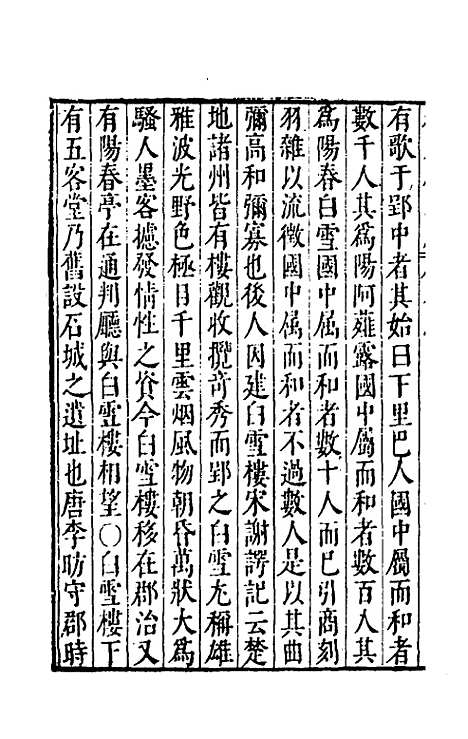 有歌于郢中者其始曰下里巴人國中屬而和者
數千人其爲陽阿薤露國中屬而和者數百人其
爲陽春白雪國中屬而和者數十人而已引商刻
羽雜以流徵國中属而和者不過數人是以其曲
彌高和彌寡也後人因建白雪樓宋謝諤記云楚
地諸州皆有樓觀收攬竒秀而郢之白雪尤稱雄
雅波光野色極目千里雲烟風物朝昏萬狀大爲
騷人墨客攄發情性之資今白雪樓移在郡治又
有陽春亭在通判廳與白雪樓相望〇白雪樓下
有五客堂乃舊設石城之遺址也唐李昉守郡時